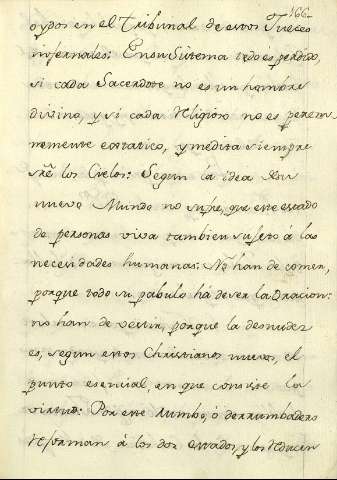 166
oydos en el Tribunal de estos Jueces
infernales: En su Sistema todo es perdido,
si cada Sacerdote no es un hombre
divino, y si cada Religioso no es peren-
nemente extatico, y medita siempre
sre los Cielos: Segun la idea de su
nuevo Mundo no sufre, que este estado
de personas viva tambien sujeto á las
necesidades humanas: No han de comer,
porque todo su pabulo há de ser la Oracion:
no han de vestir, porque la desnudez
es, segun estos Christianos nuevos, el
punto esencial, en que consiste la
virtud: Por este rumbo, ó derrumbadero
reforman á los dos estados, y los reducen